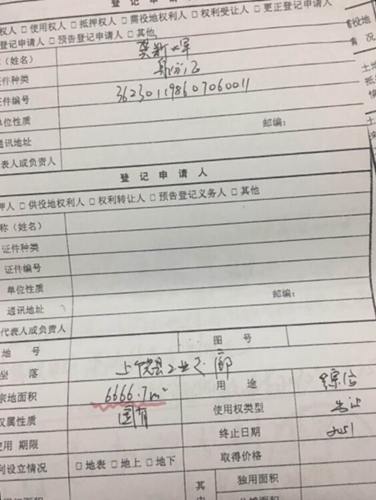 权人 □ 使用权人 □ 抵押权人 □ 需役地权利人 □ 权利受让人 □ 更正登记申请人
登记申请人 □ 预告登记申请人 □ 其他
(姓名)
证件种类 身份证
证件编号 362301198607060011
单位性质
通讯地址 邮编:
代表人或负责人
登 记 申 请 人
押人 □ 供役地权利人 □ 权利转让人 □ 预告登记义务人 □ 其他
称(姓名)
证件种类
证件编号
单位性质
通讯地址 邮编:
代表人或负责人
地 号 图 号
坐 落 上饶县工业
宗地面积 6666.7m² 用 途 综合
权属性质 国有 使用权类型
使用 期限 终止日期 2051
利设立情况 □ 地表 □ 地上 □ 地下 取得价格
其 独用面积